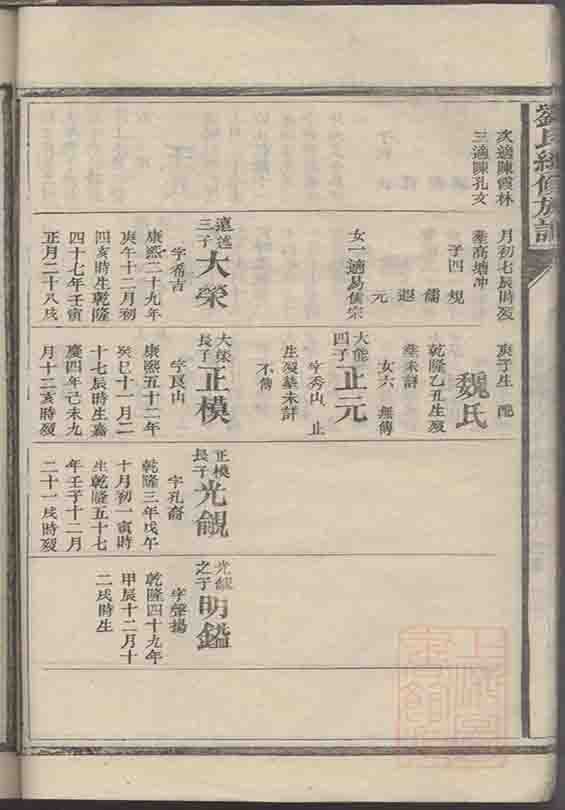 劉氏續修族譜
次適陳霞林
三適陳孔文
月初七辰時歿
葬高塘冲
子四 規
儒
遐
元
女一適易儀宗
遠述
三子
大榮
字希吉
康熙二十九年
庚午十二月初
四亥時生乾隆
四十七年壬寅
正月二十八戌
庚子生 配
魏氏
乾隆乙丑生歿
葬未詳
女六 無傳
大能
四子
正元
字秀山 止
生歿葬未詳
不傳
大榮
長子
正模
字良山
康熙五十二年
癸巳十一月二
十七辰時生嘉
慶四年己未九
月十二亥時歿
正模
長子
光觀
字孔裔
乾隆三年戊午
十月初一寅時
生乾隆五十七
年壬子十二月
二十一戌時歿
光觀
之子
明鎰
字聲揚
乾隆四十九年
甲辰十二月十
二戌時生